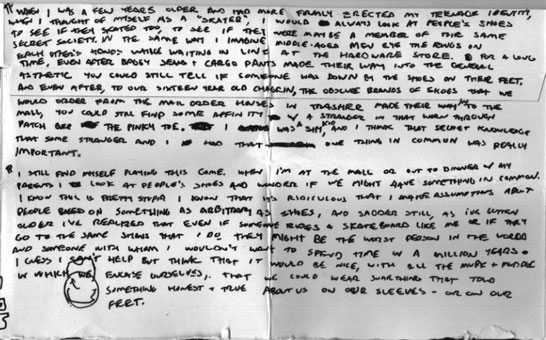 ¶ WHEN I WAS A FEW YEARS OLDER AND HAD MORE FIRMLY ERECTED MY TEENAGE IDENTITY,
WHEN I THOUGHT OF MYSELF AS A "SKATER," I WOULD ALWAYS LOOK AT PEOPLE'S SHOES
TO SEE IF THEY SKATED TOO, TO SEE IF THEY WERE MAYBE A MEMBER OF THE SAME
SECRET SOCIETY. IN THE SAME WAY I IMAGINE MIDDLE-AGED MEN EYE THE RINGS ON
EACH OTHER'S HANDS WHILE WAITING IN LINE AT THE HARDWARE STORE. FOR A LONG
TIME, EVEN AFTER BAGGY JEANS + CARGO PANTS MADE THEIR WAY INTO THE GENERAL
AESTHETIC YOU COULD STILL TELL IF SOMEONE WAS DOWN BY THE SHOES ON THEIR FEET.
AND EVEN AFTER, TO OUR SIXTEEN YEAR OLD CHAGRIN, THE OBSCURE BRANDS OF SHOES THAT WE
WOULD ORDER FROM THE MAIL ORDER HOUSES IN THRASHER MADE THEIR WAY TO THE
MALL, YOU COULD STILL FIND SOME AFFINITY W/ A STRANGER IN THAT WORN THROUGH
PATCH THE PINKY TOE. I WAS A SHY KID, AND I THINK THAT SECRET KNOWLEDGE
THAT SOME STRANGER AND I HAD THAT ONE THING IN COMMON WAS REALLY
IMPORTANT.
¶ I STILL FIND MYSELF PLAYING THIS GAME. WHEN I'M AT THE MALL OR OUT TO DINNER W/ MY
PARENTS I LOOK AT PEOPLE'S SHOES AND WONDER IF WE MIGHT HAVE SOMETHING IN COMMON.
I KNOW THIS IS PRETTY STUPID I KNOW THAT IT'S RIDICULOUS THAT I MAKE ASSUMPTIONS ABOUT
PEOPLE BASED ON SOMETHING AS ARBITRARY AS SHOES, AND SADDER STILL, AS I'VE GOTTEN
OLDER I'VE REALIZED THAT EVEN IF SOMEONE RIDES A SKATEBOARD LIKE ME OR IF THEY
GO TO THE SAME SHOWS THAT I DO, THEY MIGHT BE THE WORST PERSON IN THE WORLD
AND SOMEONE WITH WHOM I WOULDN'T WANT TO SPEND TIME IN A MILLION YEARS.
I GUESS I CAN'T HELP BUT THINK THAT IT WOULD BE NICE, WITH ALL THE MUCK + MUDDLE
IN WHICH WE ENCASE OURSELVES, THAT WE COULD WEAR SOMETHING THAT TOLD
SOMETHING HONEST + TRUE ABOUT US ON OUR SLEEVES - OR ON OUR
FEET.